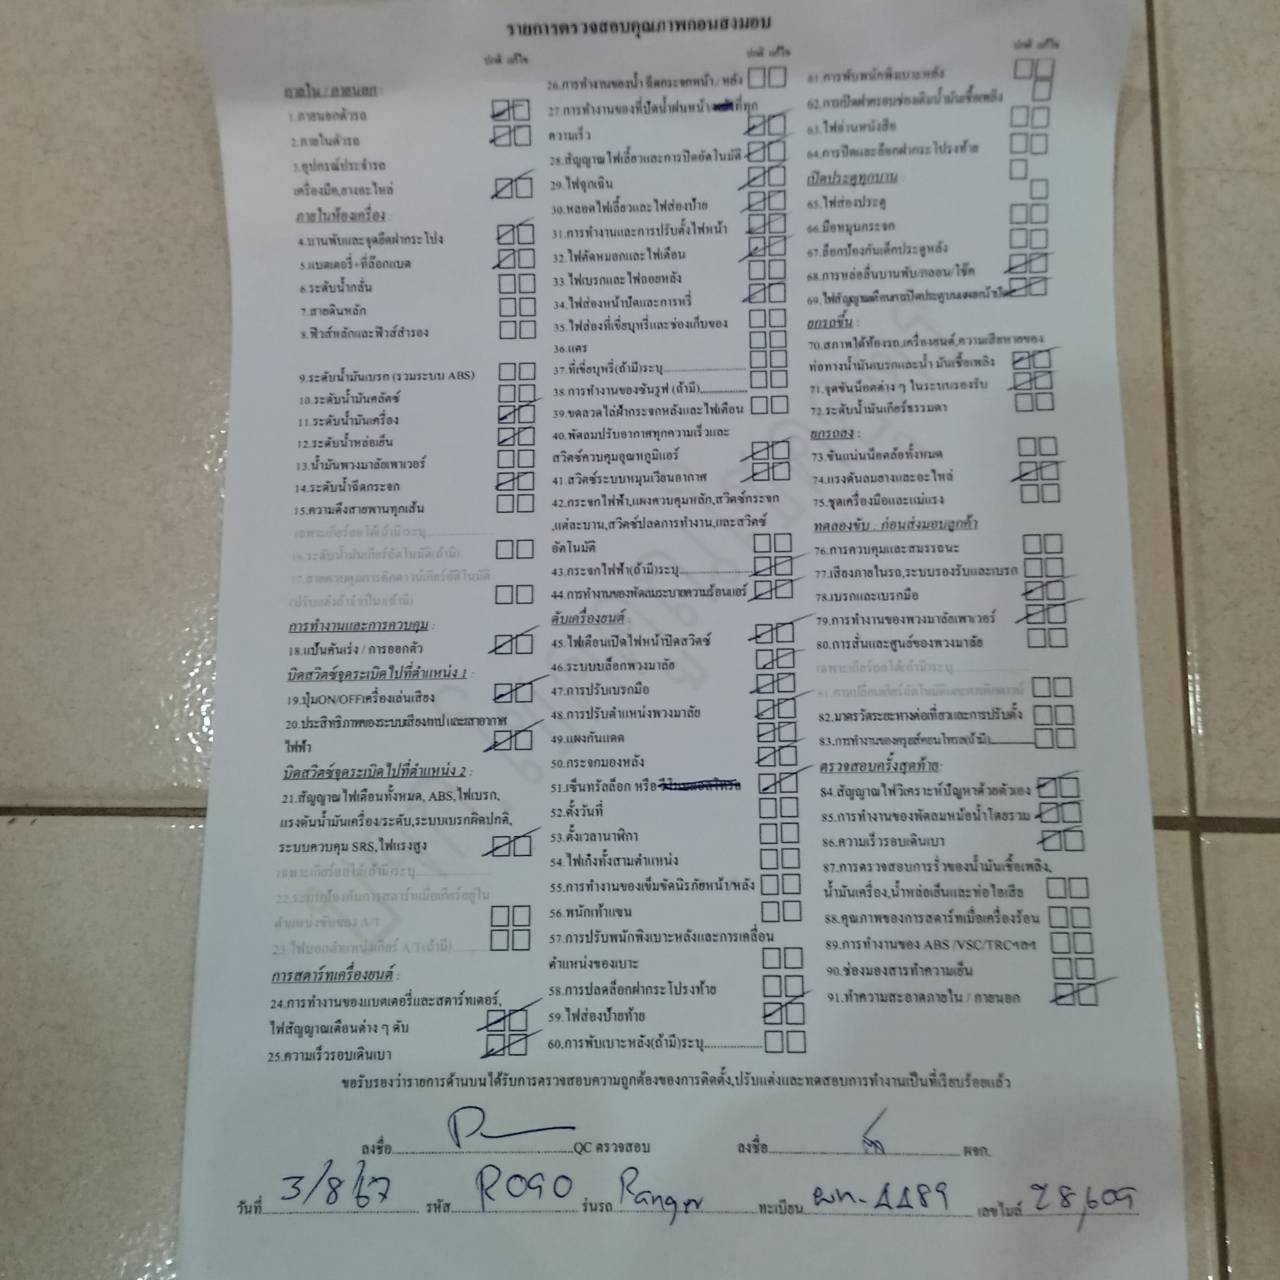 รายการตรวจสอบคุณภาพก่อนส่งมอบ
ปกติ แก้ไข
ภายใน / ภายนอก :
1.ภายนอกตัวรถ
2.ภายในตัวรถ
3.อุปกรณ์ประจำรถ
เครื่องมือ,ยางอะไหล่
ภายในห้องเครื่อง :
4.บานพับและจุดยึดฝากระโปรง
5.แบตเตอรี่+ที่ล๊อกแบต
6.ระดับน้ำกลั่น
7.สายดินหลัก
8.ฟิวส์หลักและฟิวส์สำรอง
9.ระดับน้ำมันเบรก (รวมระบบ ABS)
10.ระดับน้ำมันคลัตช์
11.ระดับน้ำมันเครื่อง
12.ระดับน้ำหล่อเย็น
13.น้ำมันพวงมาลัยเพาเวอร์
14.ระดับน้ำฉีดกระจก
15.ความตึงสายพานทุกเส้น
เฉพาะเกียร์ออโต้(ถ้ามี)ระบุ
16.ระดับน้ำมันเกียร์อัตโนมัติ(ถ้ามี)
17.สายควบคุมการคิกดาวน์เกียร์อัติโนมัติ
(ปรับแต่งถ้าจำเป็น)(ถ้ามี)
การทำงานและการควบคุม:
18.แป้นคันเร่ง / การออกตัว
บิดสวิตช์จุดระเบิดไปที่ตำแหน่ง 1 :
19.ปุ่มON/OFFเครื่องเล่นเสียง
20.ประสิทธิภาพของระบบเสียง/เทป และเสาอากาศ
ไฟฟ้า
บิดสวิตช์จุดระเบิดไปที่ตำแหน่ง 2 :
21.สัญญาณไฟเตือนทั้งหมด, ABS,ไฟเบรก,
แรงดันน้ำมันเครื่อง/ระดับ,ระบบเบรกผิดปกติ,
ระบบควบคุม SRS,ไฟแรงสูง
เฉพาะเกียร์ออโต้(ถ้ามี)ระบุ
22.ระบบป้องกันการสตาร์ทเมื่อเกียร์อยู่ใน
ตำแหน่งขับของ A/T
23.ไฟบอกตำแหน่งเกียร์ A/T(ถ้ามี)
การสตาร์ทเครื่องยนต์ :
24.การทำงานของแบตเตอรี่และสตาร์ทเตอร์,
ไฟสัญญาณเตือนต่าง ๆ ดับ
25.ความเร็วรอบเดินเบา
ปกติ แก้ไข
26.การทำงานของน้ำ ฉีดกระจกหน้า / หลัง
27.การทำงานของที่ปัดน้ำฝนหน้า ที่ทุก
ความเร็ว
28.สัญญาณไฟเลี้ยวและการปิดอัตโนมัติ
29.ไฟฉุกเฉิน
30.หลอดไฟเลี้ยวและไฟส่องป้าย
31.การทำงานและการปรับตั้งไฟหน้า
32.ไฟตัดหมอกและไฟเตือน
33.ไฟเบรกและไฟถอยหลัง
34.ไฟส่องหน้าปัดและการหรี่
35.ไฟส่องที่เขี่ยบุหรี่และช่องเก็บของ
36.แตร
37.ที่เขี่ยบุหรี่(ถ้ามี)ระบุ
38.การทำงานของซันรูฟ (ถ้ามี)
39.ขดลวดไล่ฝ้ากระจกหลังและไฟเตือน
40.พัดลมปรับอากาศทุกความเร็วและ
สวิตช์ควบคุมอุณหภูมิแอร์
41.สวิตช์ระบบหมุนเวียนอากาศ
42.กระจกไฟฟ้า,แผงควบคุมหลัก,สวิตช์กระจก
,แต่ละบาน,สวิตช์ปลดการทำงาน,และสวิตช์
อัตโนมัติ
43.กระจกไฟฟ้า(ถ้ามี)ระบุ
44.การทำงานของพัดลมระบายความร้อนแอร์
ดับเครื่องยนต์ :
45.ไฟเตือนเปิดไฟหน้าปิดสวิตซ์
46.ระบบบล็อกพวงมาลัย
47.การปรับเบรกมือ
48.การปรับตำแหน่งพวงมาลัย
49.แผงกันแดด
50.กระจกมองหลัง
51.เซ็นทรัลล็อก หรือ
52.ตั้งวันที่
53.ตั้งเวลานาฬิกา
54.ไฟเก๋งทั้งสามตำแหน่ง
55.การทำงานของเข็มขัดนิรภัยหน้า/หลัง
56.พนักเท้าแขน
57.การปรับพนักพิงเบาะหลังและการเคลื่อน
ตำแหน่งของเบาะ
58.การปลดล็อกฝากระโปรงท้าย
59.ไฟส่องป้ายท้าย
60.การพับเบาะหลัง(ถ้ามี)ระบุ
ปกติ แก้ไข
61.การพับพนักพิงเบาะหลัง
62.การเปิดฝาครอบช่องเติมน้ำมันเชื้อเพลิง
63.ไฟอ่านหนังสือ
64.การปิดและล็อกฝากระโปรงท้าย
เปิดประตูทุกบาน :
65.ไฟส่องประตู
66.มือหมุนกระจก
67.ล็อกป้องกันเด็กประตูหลัง
68.การหล่อลื่นบานพับ/กลอน/โช๊ค
69.ไฟสัญญาณเตือนการเปิดประตูบนแผงหน้าปัด
ยกรถขึ้น :
70.สภาพใต้ท้องรถ,เครื่องยนต์,ความเสียหายของ
ท่อทางน้ำมันเบรกและน้ำ มันเชื้อเพลิง
71.จุดขันน็อตต่าง ๆ ในระบบรองรับ
72.ระดับน้ำมันเกียร์ธรรมดา
ยกรถลง :
73.ขันแน่นน็อตล้อทั้งหมด
74.แรงดันลมยางและอะไหล่
75.ชุดเครื่องมือและแม่แรง
ทดลองขับ : ก่อนส่งมอบลูกค้า
76.การควบคุมและสมรรถนะ
77.เสียงภายในรถ,ระบบรองรับและเบรก
78.เบรกและเบรกมือ
79.การทำงานของพวงมาลัยเพาเวอร์
80.การสั่นและศูนย์ของพวงมาลัย
เฉพาะเกียร์ออโต้(ถ้ามี)ระบุ
81.การเปลี่ยนเกียร์อัตโนมัติและการคิกดาวน์
82.มาตรวัดระยะทางต่อเที่ยวและการปรับตั้ง
83.การทำงานของครุยส์คอนโทรล(ถ้ามี)
ตรวจสอบครั้งสุดท้าย:
84.สัญญาณไฟวิเคราะห์ปัญหาด้วยตัวเอง
85.การทำงานของพัดลมหม้อน้ำโดยรวม
86.ความเร็วรอบเดินเบา
87.การตรวจสอบการรั่วของน้ำมันเชื้อเพลิง,
น้ำมันเครื่อง,น้ำหล่อเย็นและท่อไอเสีย
88.คุณภาพของการสตาร์ทเมื่อเครื่องร้อน
89.การทำงานของ ABS /VSC/TRCฯลฯ
90.ช่องมองสารทำความเย็น
91.ทำความสะอาดภายใน / ภายนอก
ขอรับรองว่ารายการด้านบนได้รับการตรวจสอบความถูกต้องของการติดตั้ง,ปรับแต่งและทดสอบการทำงานเป็นที่เรียบร้อยแล้ว
ลงชื่อ QC ตรวจสอบ ลงชื่อ ผจก.
วันที่ 3/8/67 รหัส R090 รุ่นรถ Ranger ทะเบียน ผท-4489 เลขไมล์ 28,609